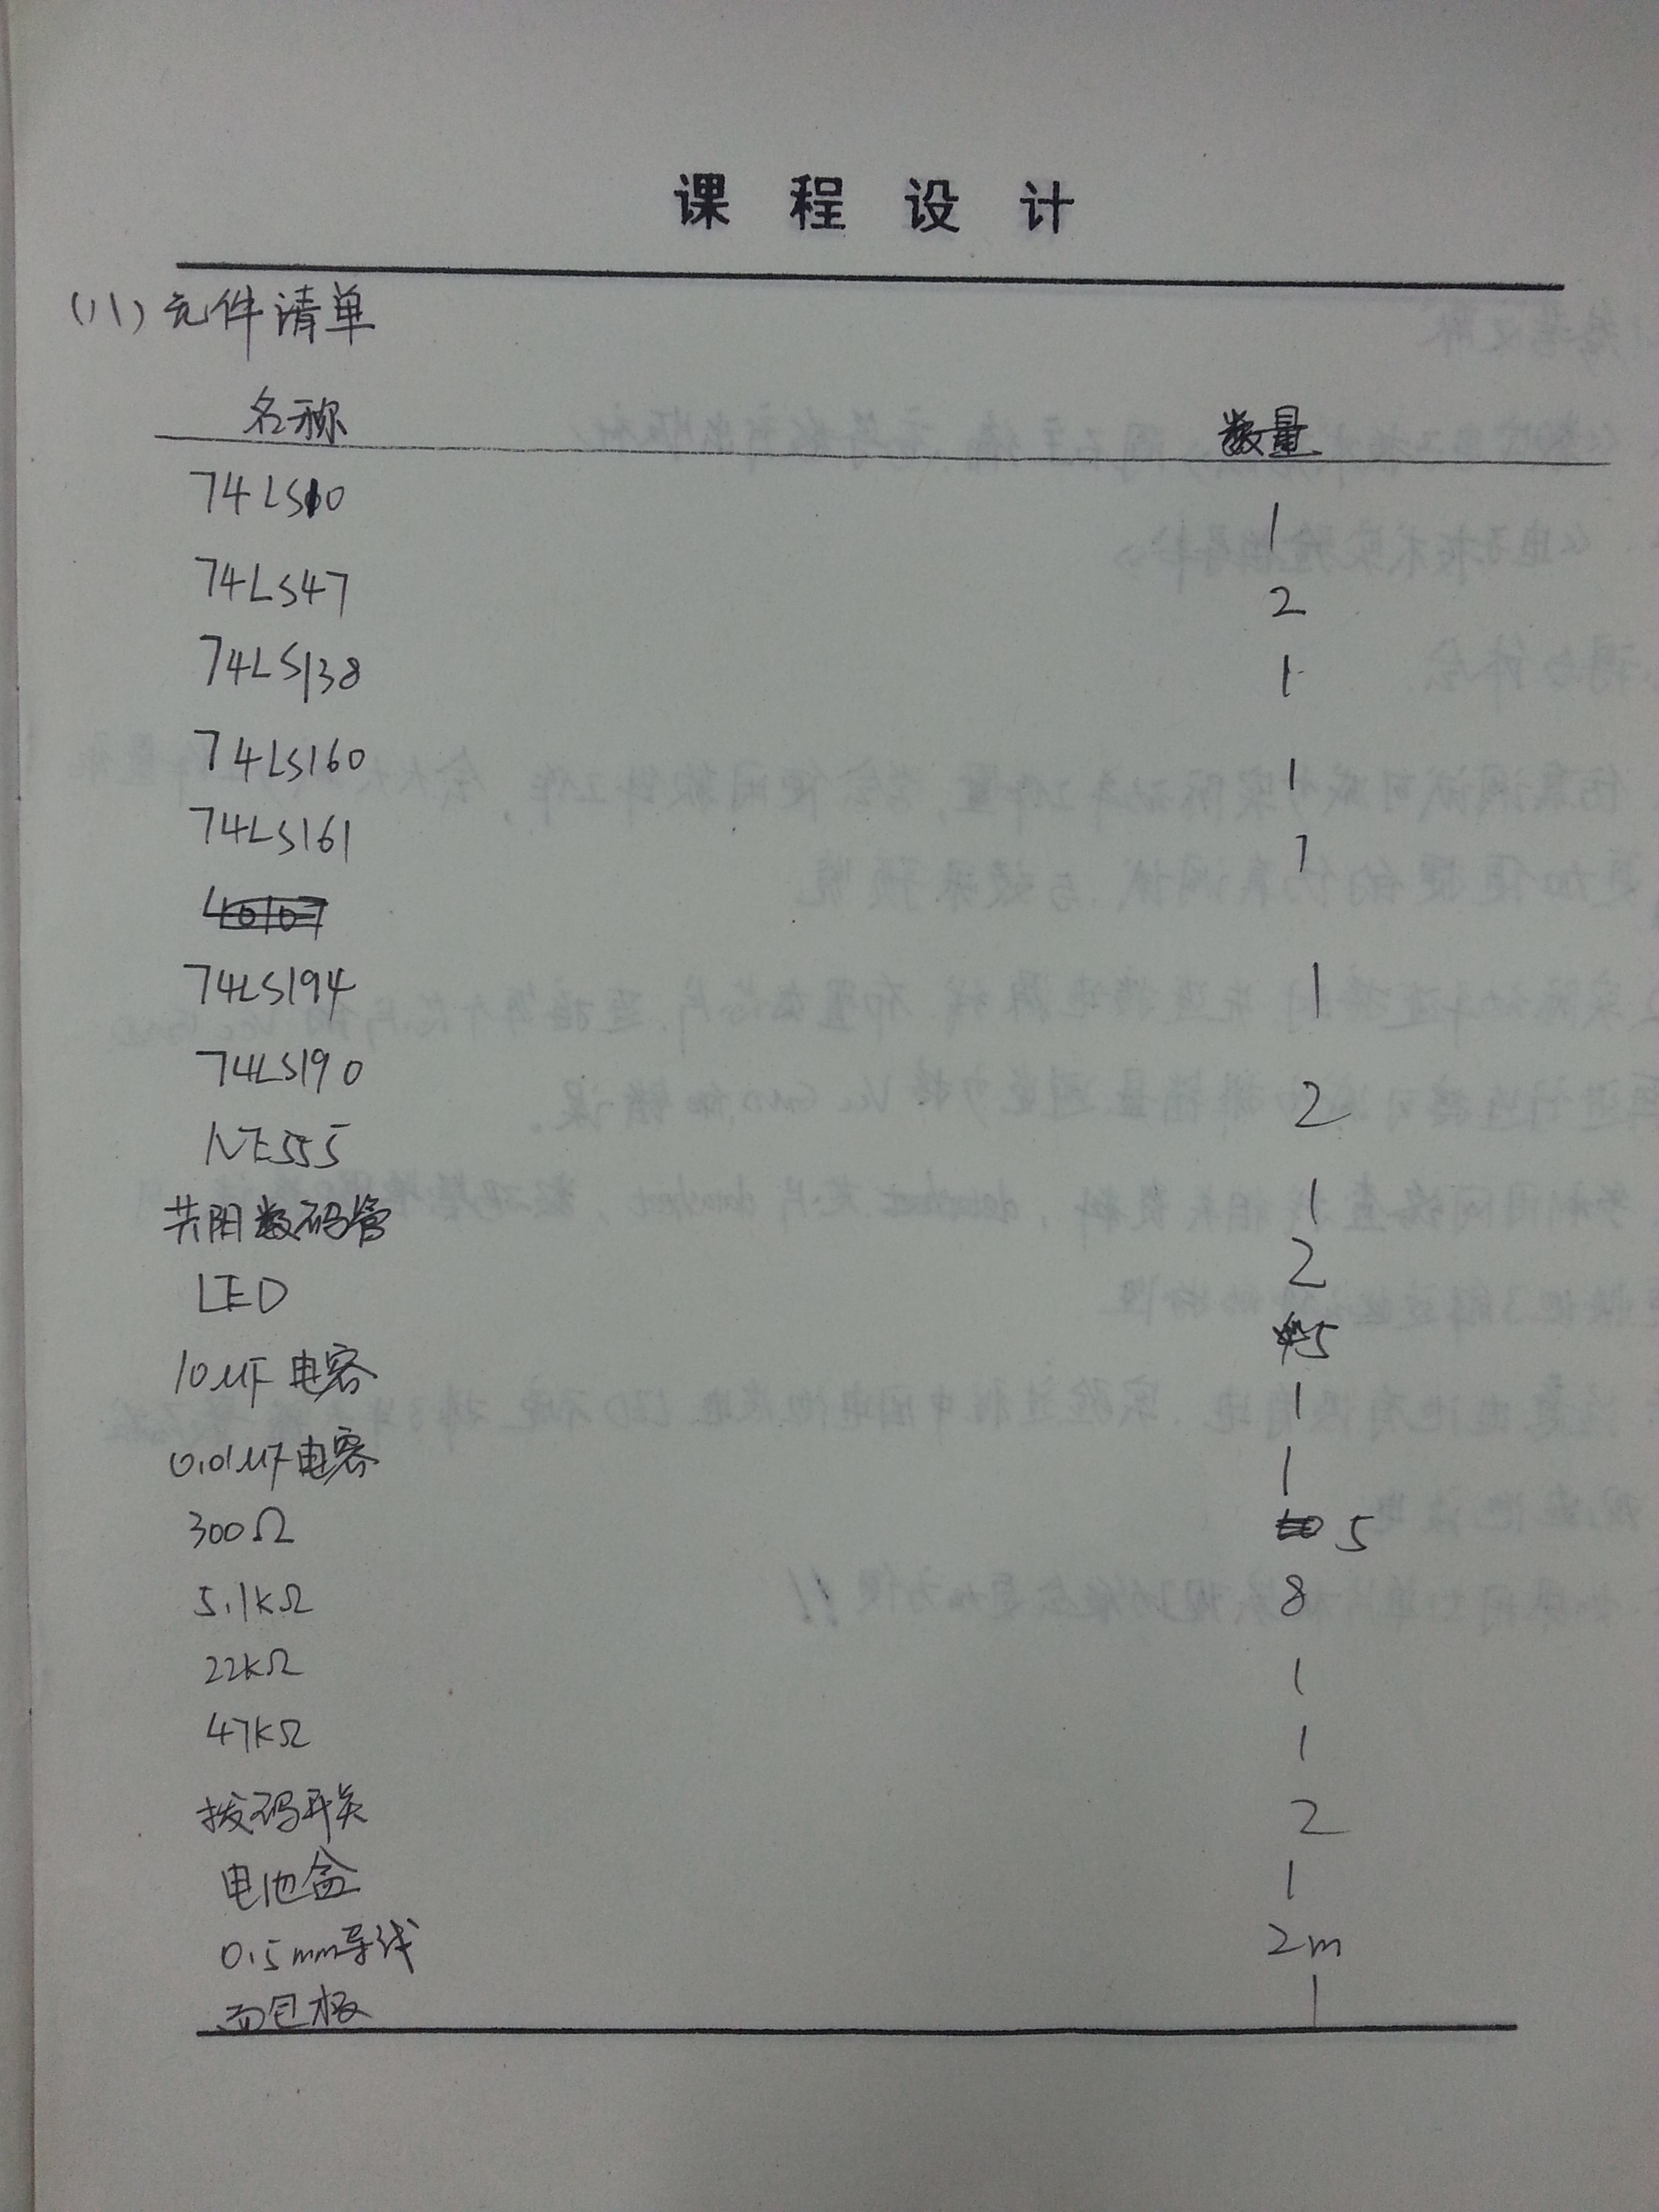 课程设计
(八)元件清单
名称 数量
74LS10 1
74LS47 2
74LS138 1
74LS160 1
74LS161 1
74LS194 1
74LS190 2
NE555 1
共阳数码管 2
LED 5
10μF 电容 1
0.01μF电容 1
300Ω 5
5.1kΩ 8
22kΩ 1
47kΩ 1
拨码开关 2
电池盒 1
0.5mm导线 2m
面包板 1